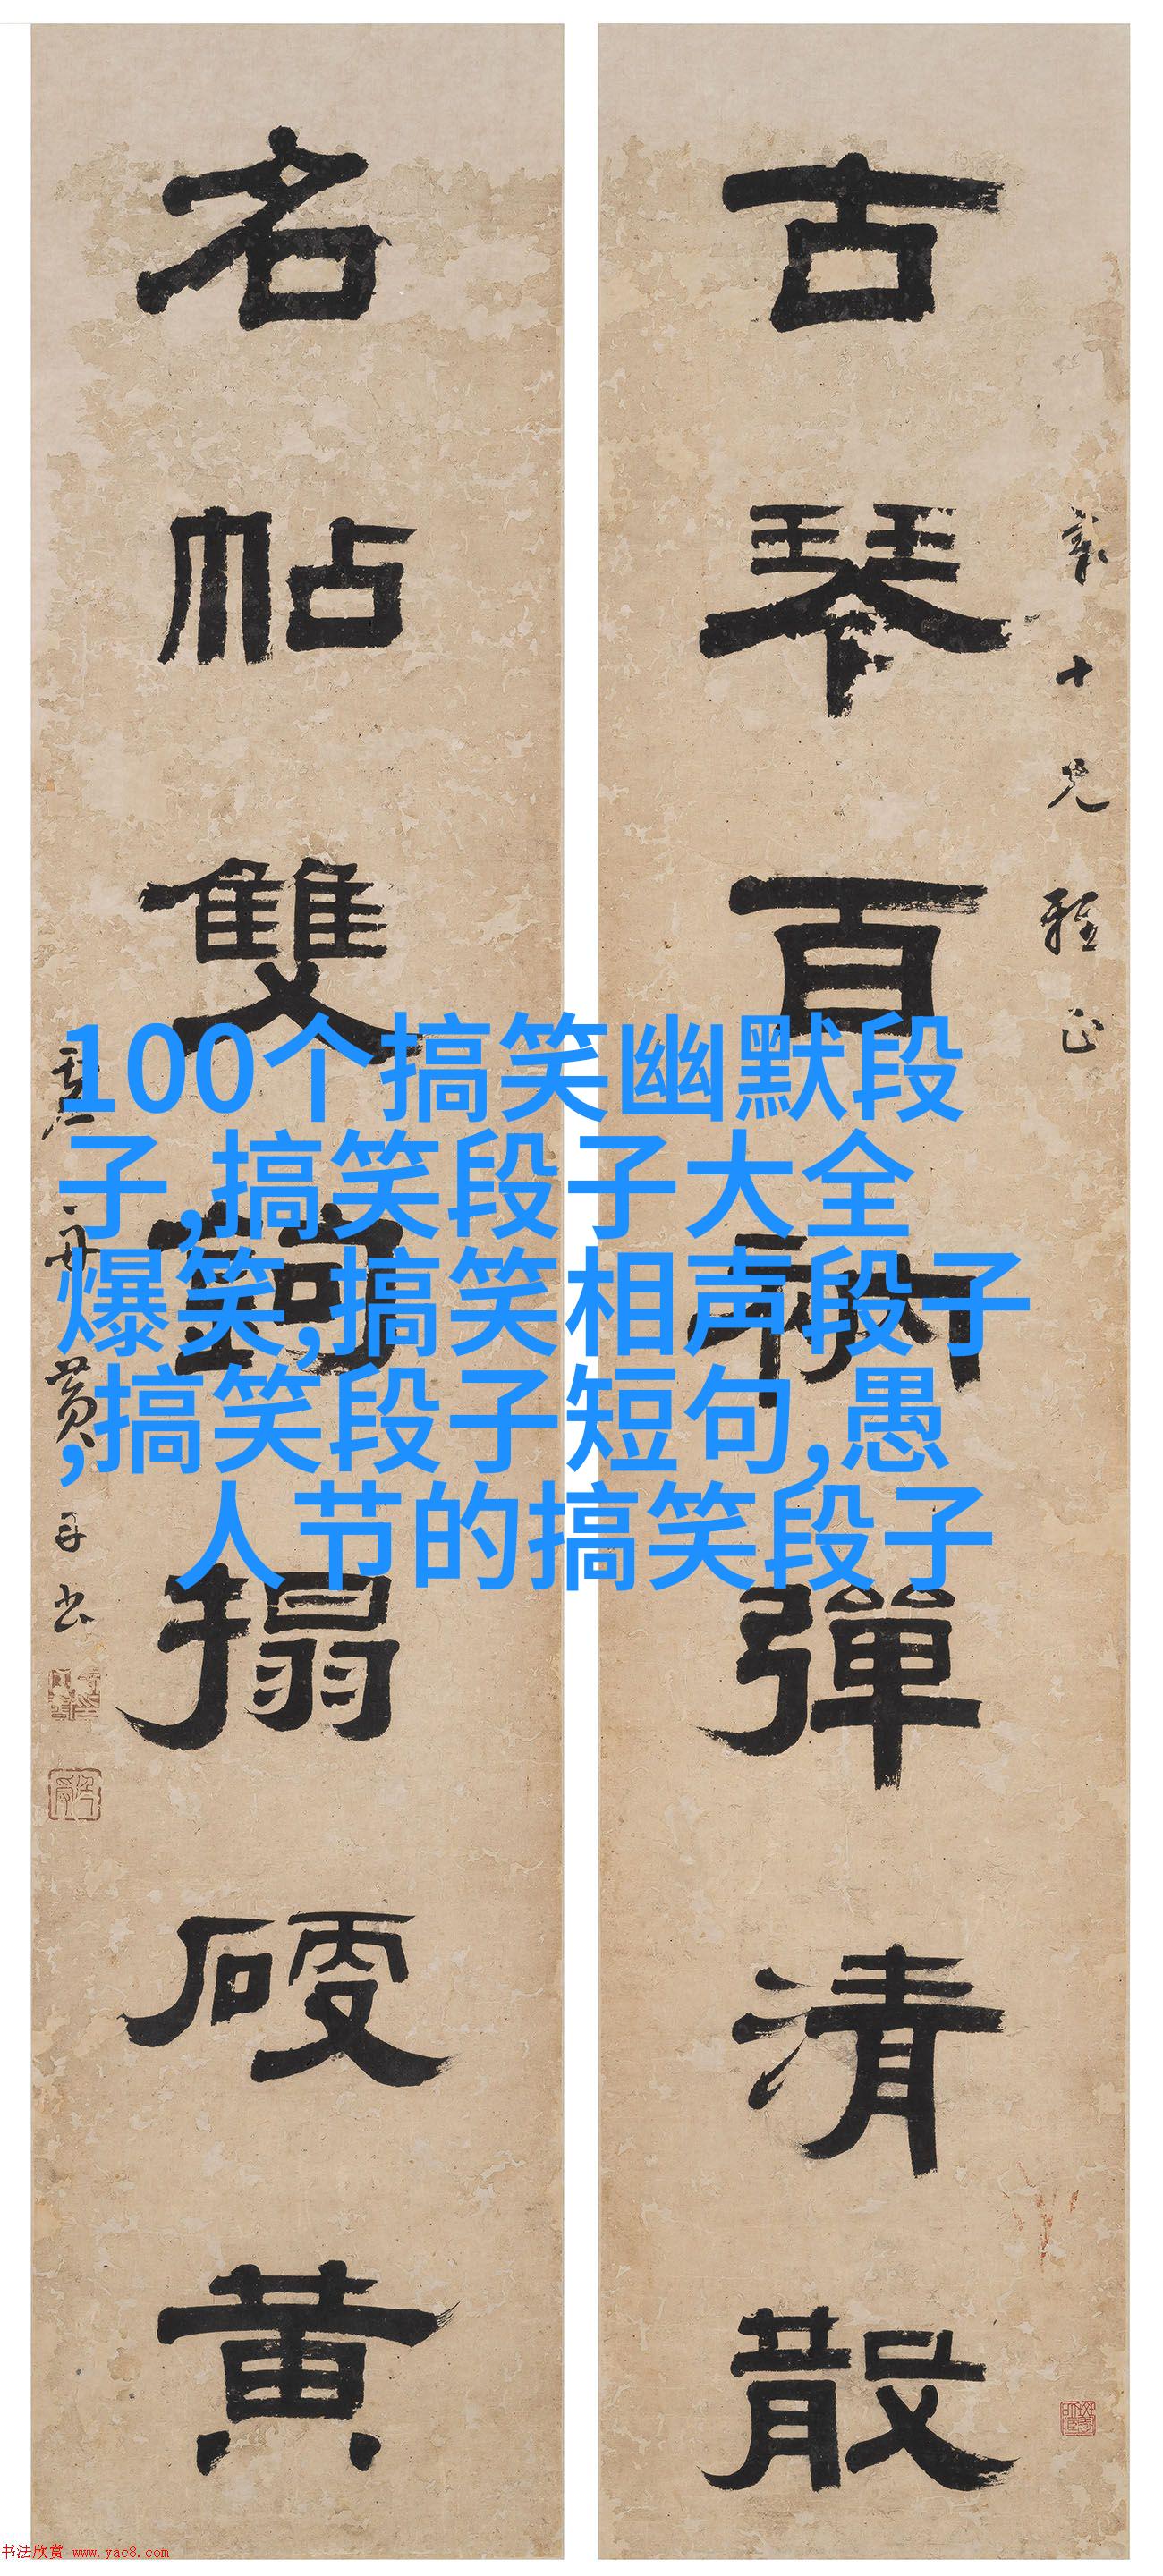 古琴百衲彈清散
名帖雙鉤搨硬黄
十兄雅正
黄易書
100个搞笑幽默段
子,搞笑段子大全
爆笑,搞笑相声段子
,搞笑段子短句,愚
人节的搞笑段子
书法欣赏 www.yac8.com